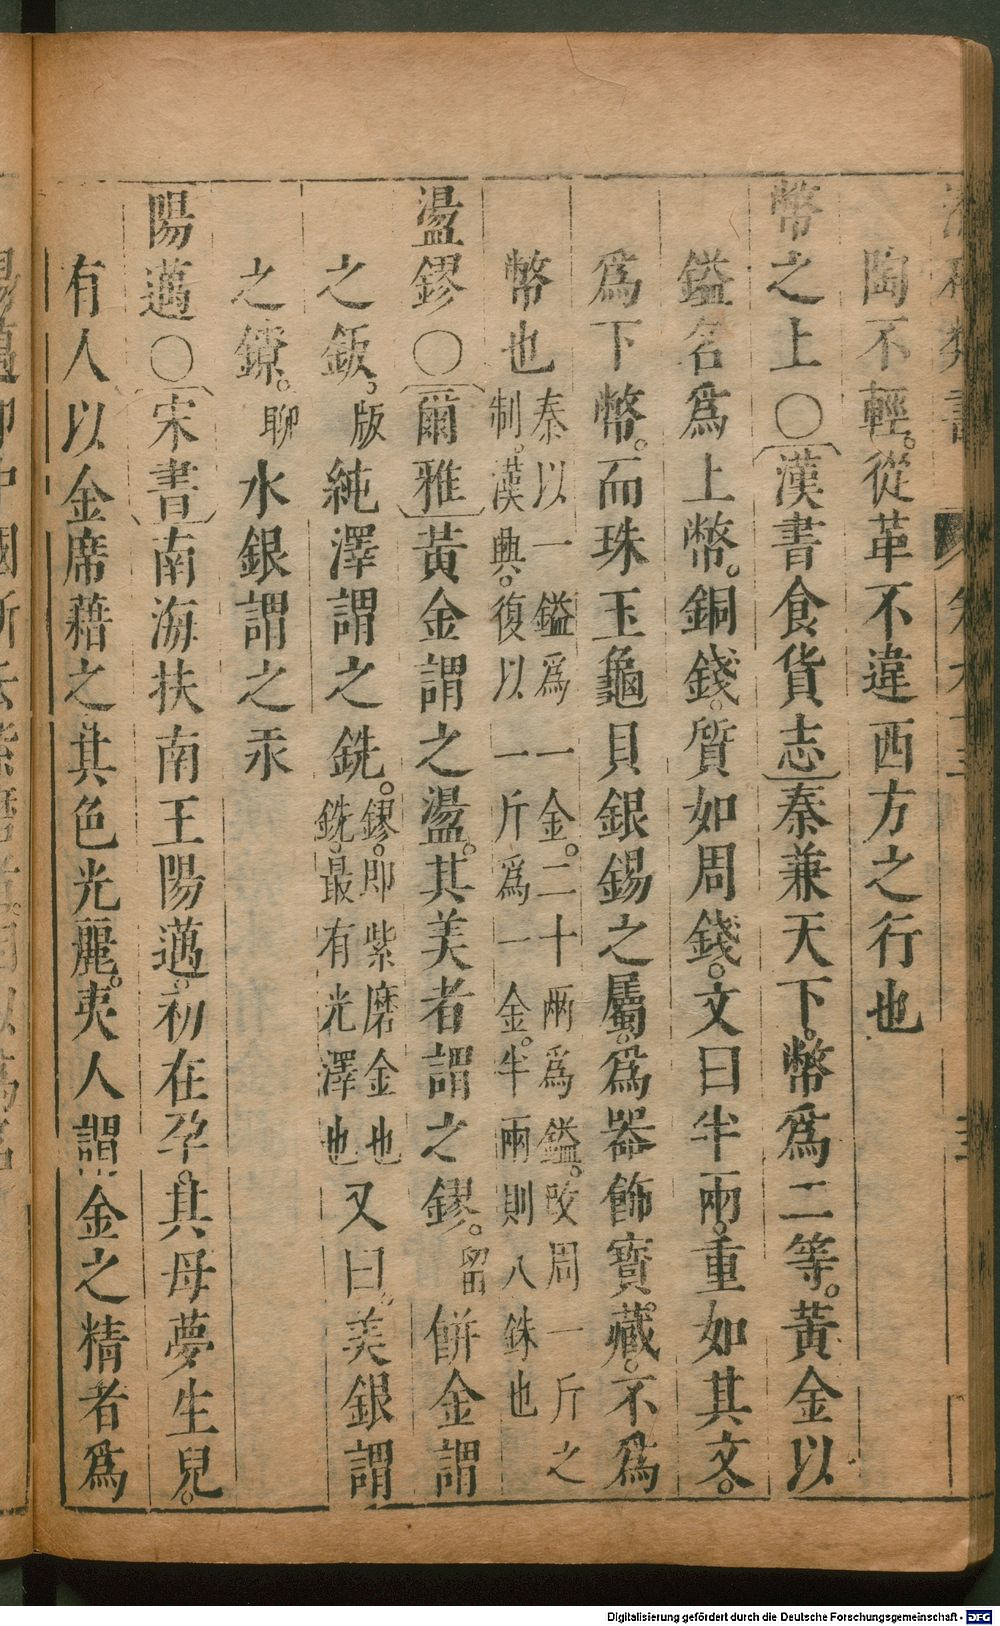 陶不輕。從革不違西方之行也
幣之上○漢書食貨志秦兼天下。幣爲二等。黃金以
鎰名爲上幣。銅錢。質如周錢。文曰半兩。重如其文。
爲下幣。而珠玉龜貝銀錫之屬。爲器飾寶藏。不爲
幣也秦以一鎰爲一金。二十兩爲鎰。攷周一斤之
制。漢興。復以一斤爲一金。半兩則八銖也
盪鏐○爾雅黃金謂之盪。其美者謂之鏐。留鉼金謂
之鈑。版純澤謂之銑。鏐。即紫磨金也
銑。最有光澤也又曰。美銀謂
之鐐。聊水銀謂之汞
陽邁○宋書南海扶南王陽邁。初在孕。其母夢生兒。
有人以金席藉之其色光麗。夷人謂金之精者爲
Digitalisierung gefördert durch die Deutsche Forschungsgemeinschaft - DFG